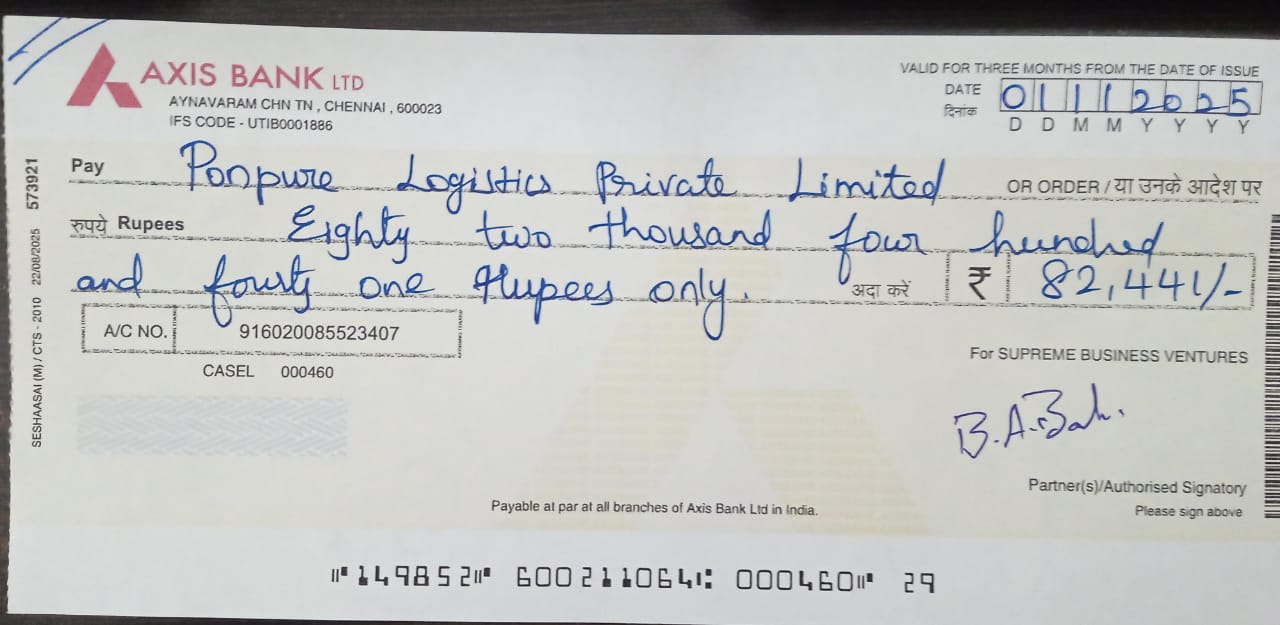 AXIS BANK LTD
AYNAVARAM CHN TN , CHENNAI , 600023
IFS CODE - UTIB0001886
VALID FOR THREE MONTHS FROM THE DATE OF ISSUE
DATE 01112025
दिनांक D D M M Y Y Y Y
Pay Ponpure Logistics Private Limited OR ORDER / या उनके आदेश पर
रुपये Rupees Eighty two thousand four hundred
and fourty one Rupees only. अदा करें ₹ 82,441/-
A/C NO. 916020085523407
CASEL 000460
For SUPREME BUSINESS VENTURES
B.A.
Partner(s)/Authorised Signatory
Please sign above
Payable at par at all branches of Axis Bank Ltd in India.
⑈149852⑈ 600211064⑆ 000460⑈ 29
SESHAASAI (M) / CTS - 2010 22/08/2025 573921